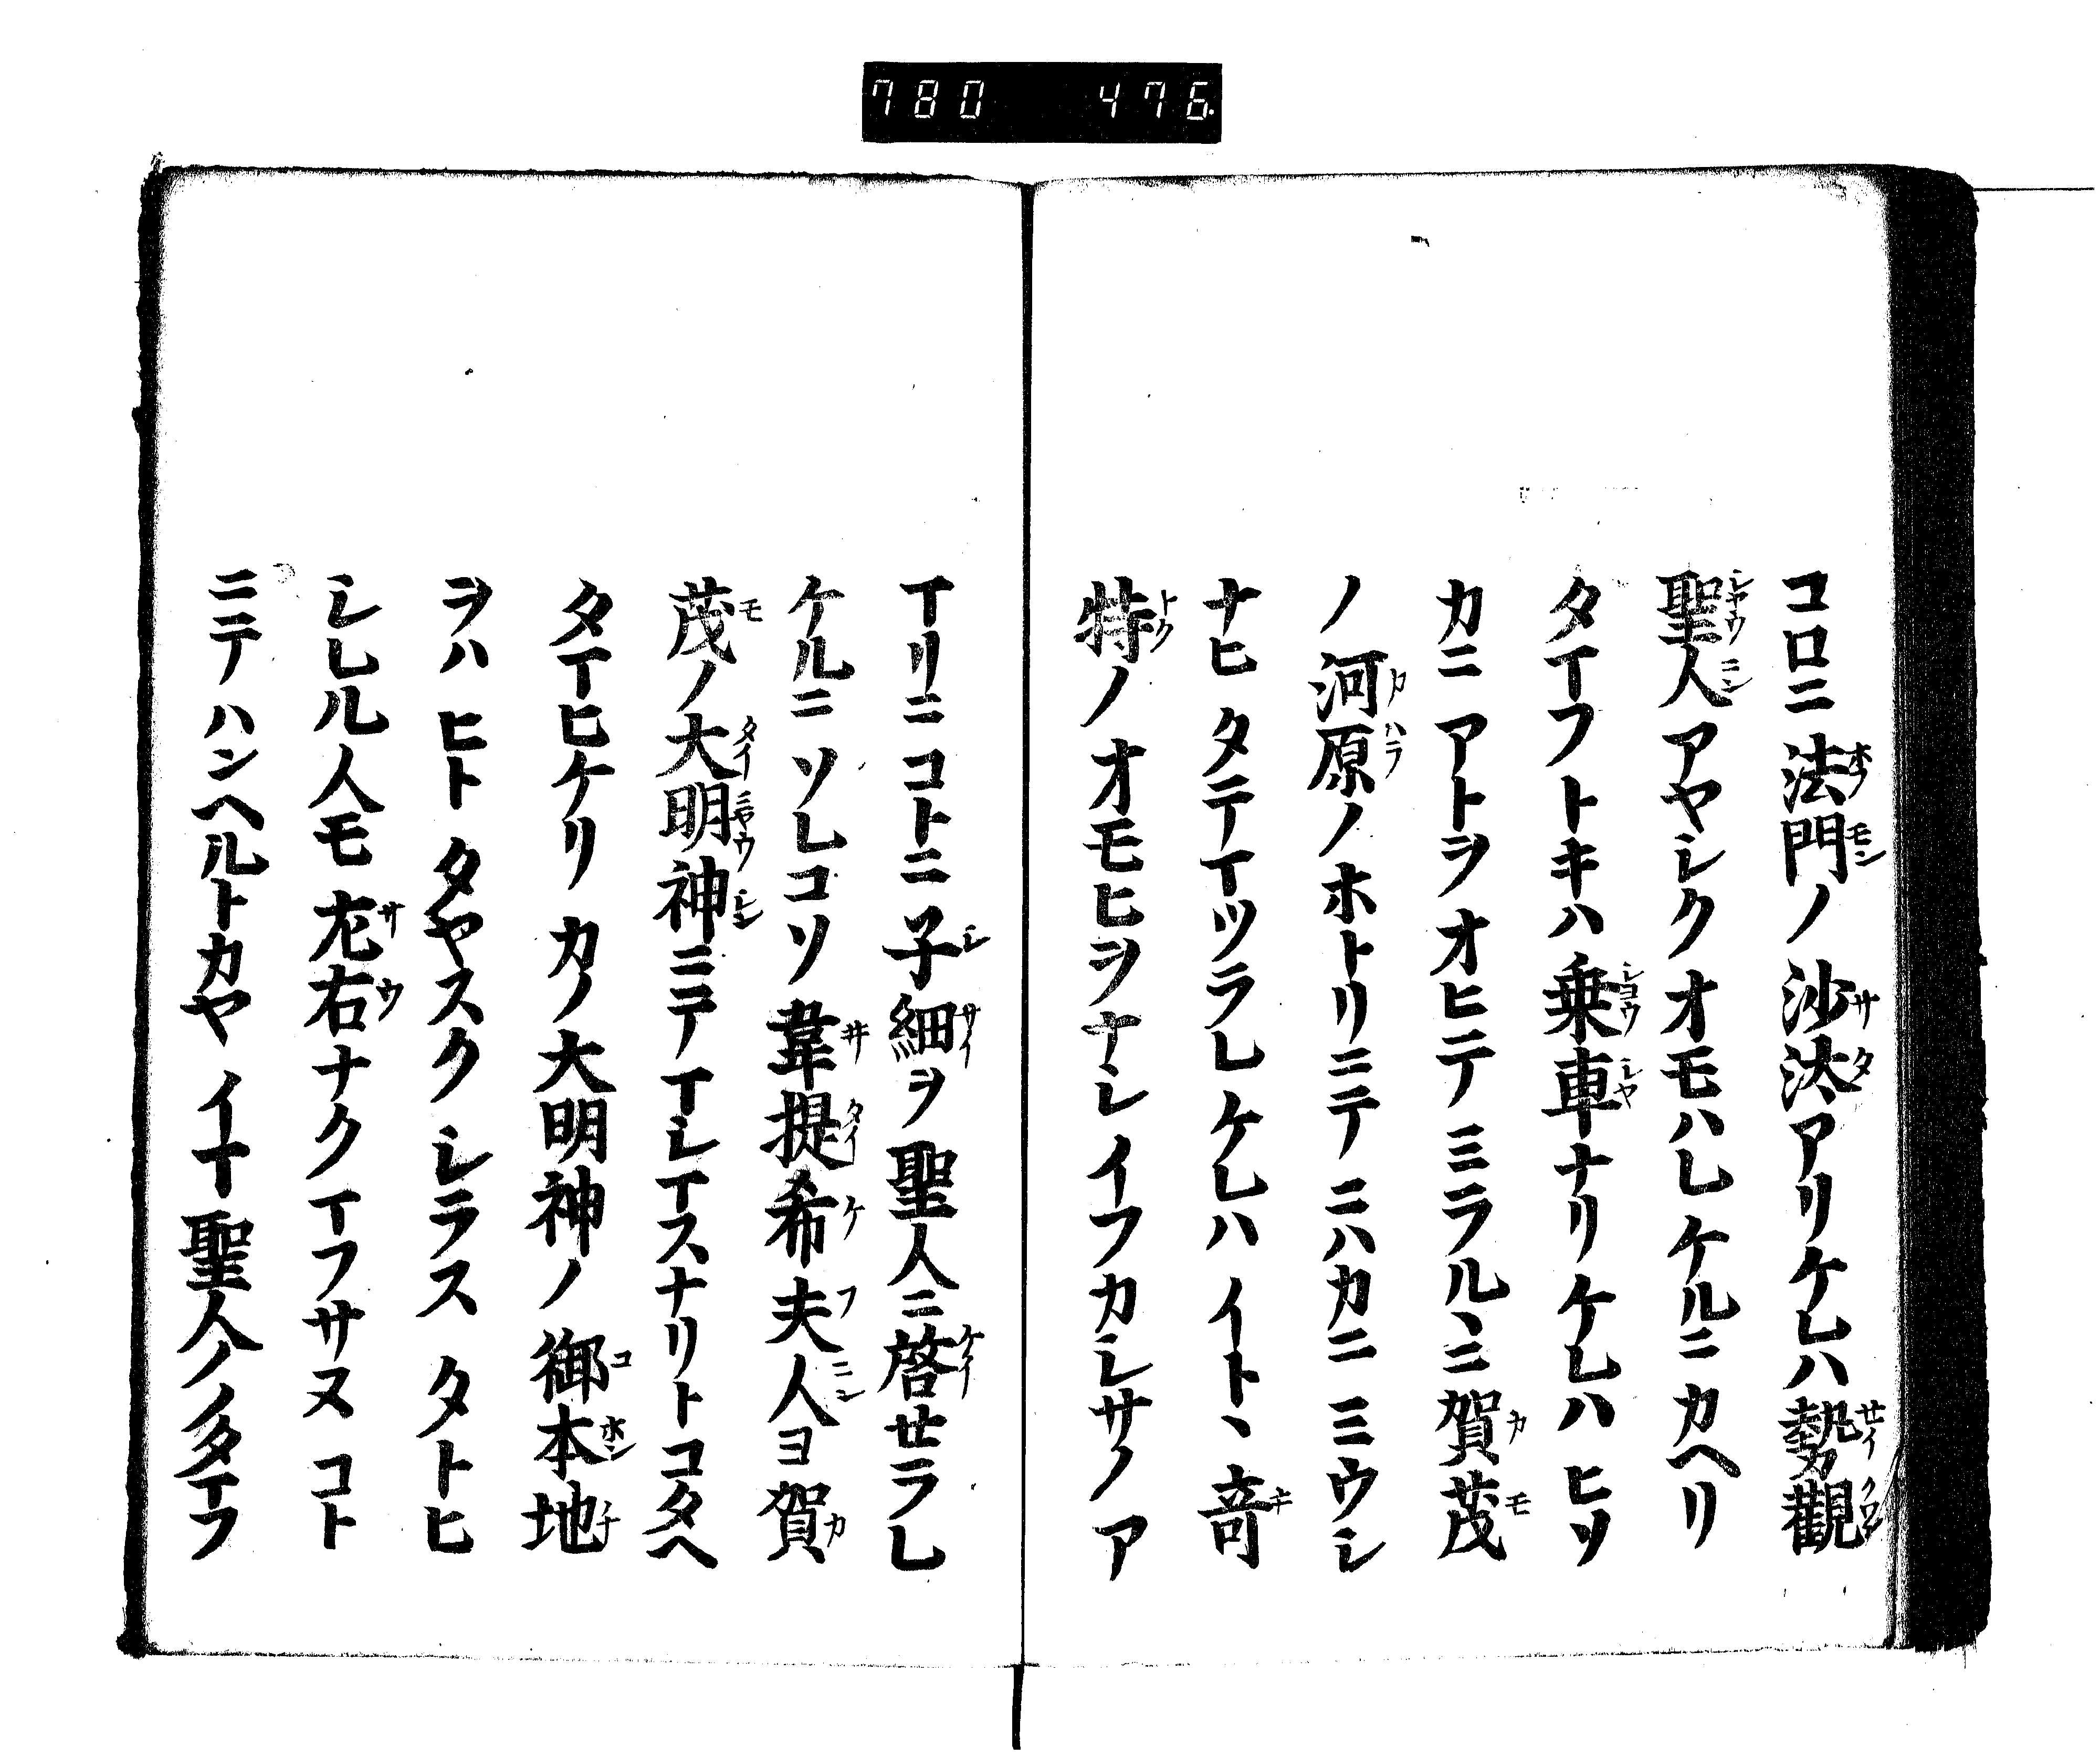 780 476
コロニ法門ノ沙汰アリケレハ勢觀
聖人アヤシクオモハレケルニカヘリ
タイフトキハ乗車ナリケレハヒソ
カニアトヲオヒテミラルヽニ賀茂
ノ河原ノホトリニテニハカニミウシ
ナヒタテイツラレケレハイトヽ竒
特ノオモヒヲナシイフカシサノア
イリニコトニ子細ヲ聖人ニ啓セラレ
ケルニソレコソ韋提希夫人ヨ賀
茂ノ大明神ニテイレイスナリトコタヘ
タイヒケリカノ大明神ノ御本地
ヲハヒトタヤスクシラスタトヒ
シレル人モ左右ナクイフサヌコト
ニテハンヘルトカヤイイ聖人ノノタイフ